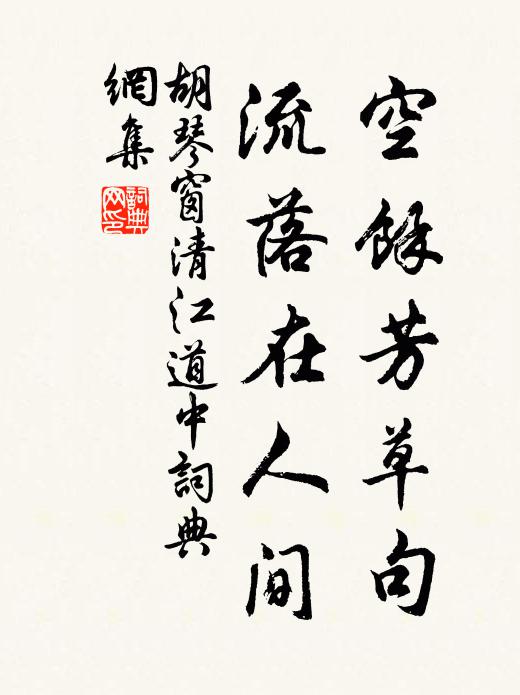 空餘芳草句
流落在人間
胡琴窗清江道中詞典
網集
詞典网印